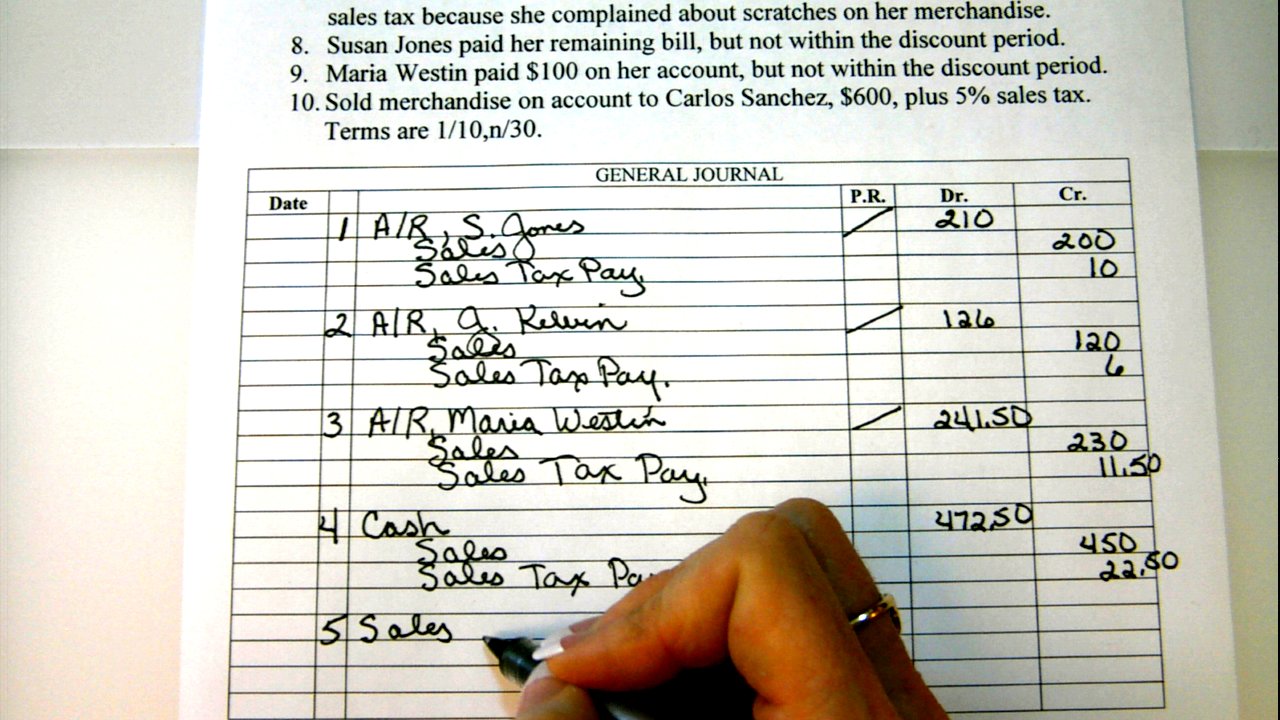 sales tax because she complained about scratches on her merchandise.
8. Susan Jones paid her remaining bill, but not within the discount period.
9. Maria Westin paid $100 on her account, but not within the discount period.
10. Sold merchandise on account to Carlos Sanchez, $600, plus 5% sales tax.
Terms are 1/10,n/30.
GENERAL JOURNAL
Date P.R. Dr. Cr.
1 A/R, S. Jones 210
Sales 200
Sales Tax Pay. 10
2 A/R, J. Kelvin 126
Sales 120
Sales Tax Pay. 6
3 A/R, Maria Westin 241.50
Sales 230
Sales Tax Pay. 11.50
4 Cash 472.50
Sales 450
Sales Tax Pa 22.50
5 Sales